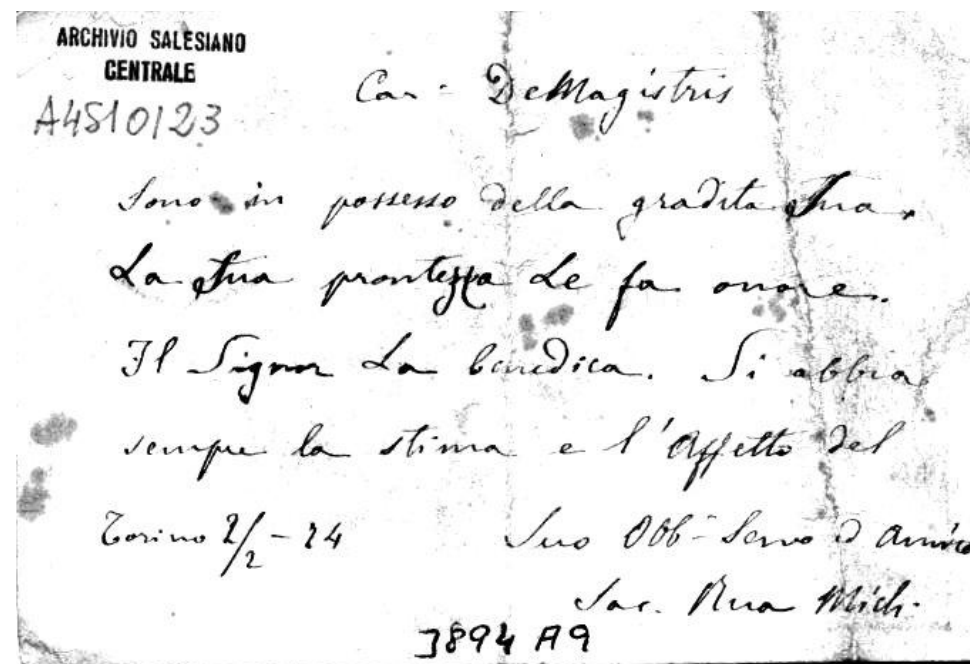 ARCHIVIO SALESIANO
CENTRALE
A4510123
Car- DeMagistris
Sono in possesso della gradita Sua.
La Sua prontezza Le fa onore.
Il Signor La benedica. Si abbia
sempre la stima e l'Affetto del
Torino 2/2-74 Suo Obb- Servo ed Amico
Sac. Rua Mich.
3894 A9